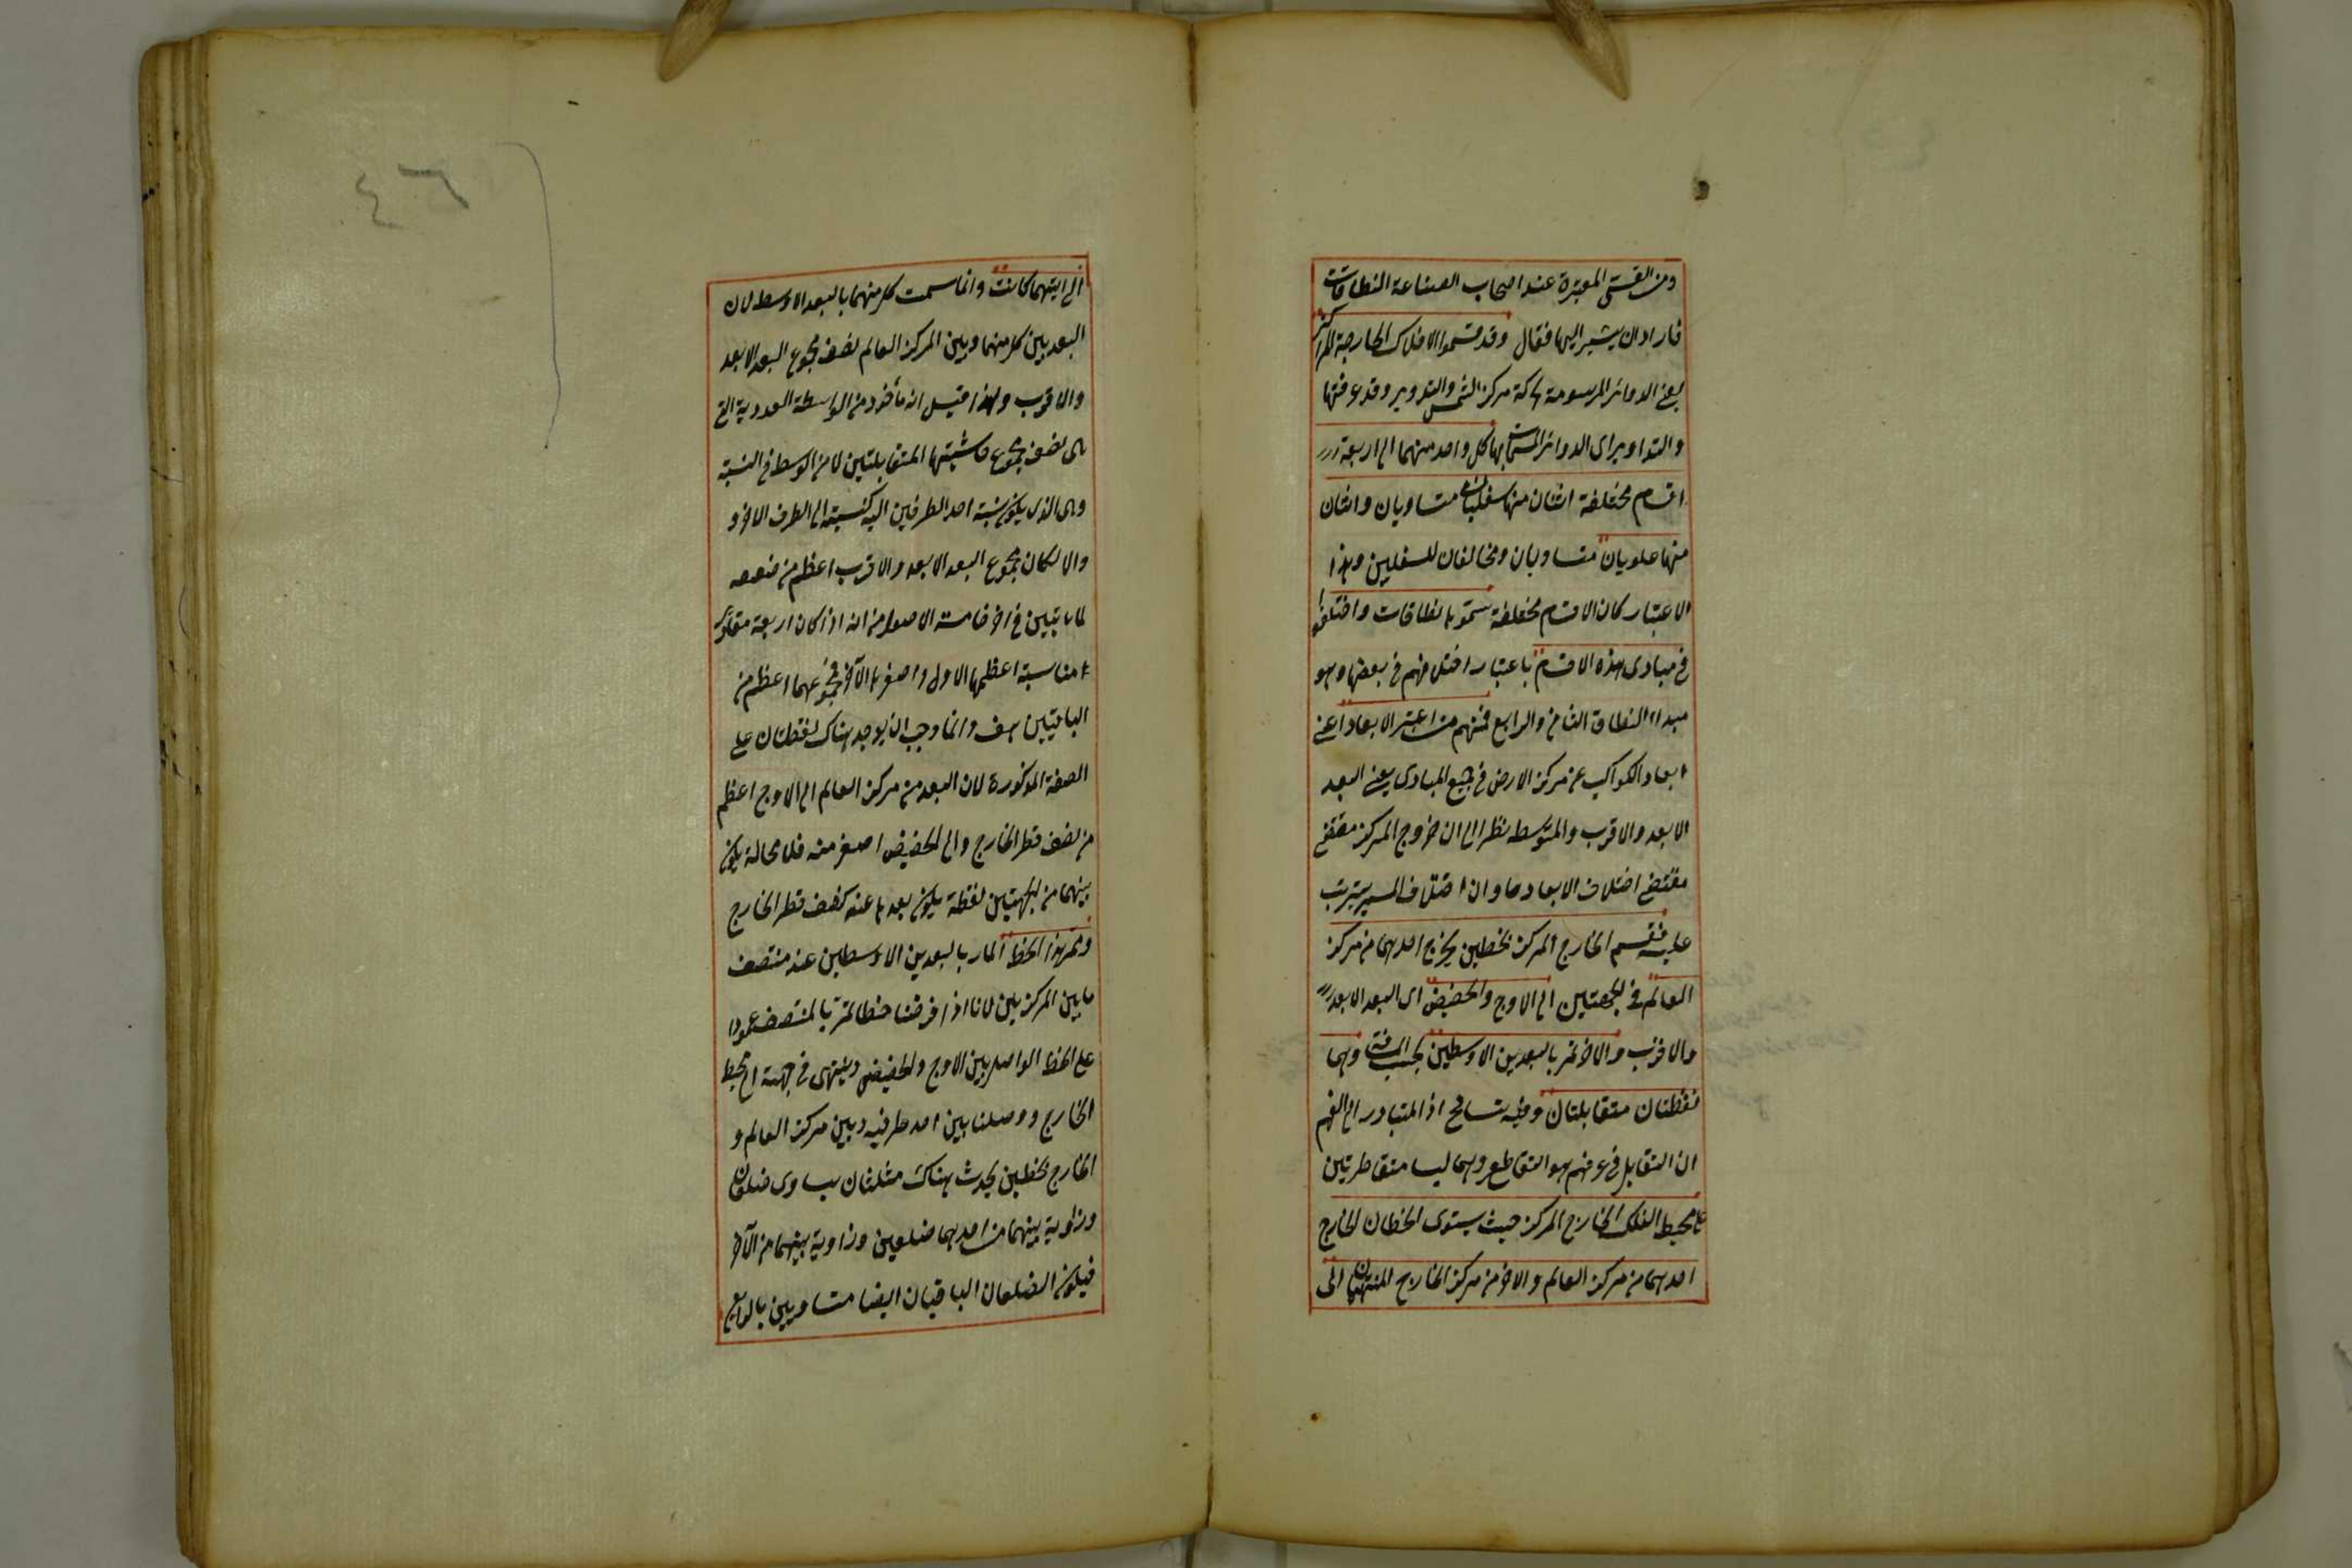 ومن القسى المعتبرة عند اصحاب الصناعة النطاقات
فاراد ان يشير اليها فقال وقد قسموا الافلاك الخارجة المراكز
يعنى الدوائر المرسومة بحركة مركز الشمس والتدوير وقد عرفتها
والتداوير اى الدوائر المسماة بها كل واحد منهما الى اربعة
اقسام مختلفة اثنان منها سفليان متساويان واثنان
منها علويان متساويان ومخالفان للسفليين وبهذا
الاعتبار كان الاقسام مختلفة سموها نطاقات واختلفوا
فى مبادى هذه الاقسام باعتبار اختلافهم فى بعضها وهو
مبداء النطاق الثانى والرابع فمنهم من اعتبر الابعاد اعنى
ابعاد الكواكب عن مركز الارض فى جميع المبادى يعنى البعد
الابعد والاقرب والمتوسط نظرا الى ان خروج المركز مقتضى
مقتضى اختلاف الابعاد وان اختلاف المسير يترتب
عليه فقسم الخارج المركز بخطين يخرج احدهما من مركز
العالم فى الجهتين الى الاوج والحضيض اى البعد الابعد
والاقرب والاخر يمر بالبعدين الاوسطين بحسب المسافة وهما
نقطتان متقابلتان وفيه تسامح اذ المتبادر الى الفهم
ان التقابل فى عرفهم هو التقاطع وهما ليسا متقاطرتين
على محيط الفلك الخارج المركز حيث يستوى الخطان الخارج
احدهما من مركز العالم والاخر من مركز الخارج المنتهيان الى
٤٦
الى ايتهما كانت وانما سميت كل منهما بالبعد الاوسط لان
البعد بين كل منهما وبين المركز العالم نصف مجموع البعد الابعد
والاقرب ولهذا قيل انه مأخوذ من الواسطة العددية التى
هى نصف مجموع حاشيتها المتقابلتين لا من الوسط فى النسبة
وهى الذى يكون نسبة احد الطرفين اليه كنسبته الى الطرف الاخر و
والا لكان مجموع البعد الابعد والاقرب اعظم من ضعفه
لما تبين فى اخر خامسة الاصول من انه اذا كان اربعة مقادير
متناسبة اعظمها الاول واصغرها الآخر فمجموعهما اعظم من
الباقيين هف وانما وجب ان يوجد هناك نقطتان على
الصفة المذكورة لان البعد من مركز العالم الى الاوج اعظم
من نصف قطر الخارج والى الحضيض اصغر منه فلا محالة يكون
بينهما من الجهتين نقطة يكون بعدها عنه كنصف قطر الخارج
ويمر هذا الخط المار بالبعدين الاوسطين عند منتصف
ما بين المركزين لانا اذا فرضنا خطا يمر بالمنتصف عمودا
على الخط الواصل بين الاوج والحضيض وينتهى فى جهته الى محيط
الخارج ووصلنا بين احد طرفيه وبين مركز العالم و
الخارج بخطين يحدث هناك مثلثان يساوى ضلعان
وزاوية بينهما من احدهما ضلعين وزاوية بينهما من الآخر
فيكون الضلعان الباقيان ايضا متساويين بالرابع